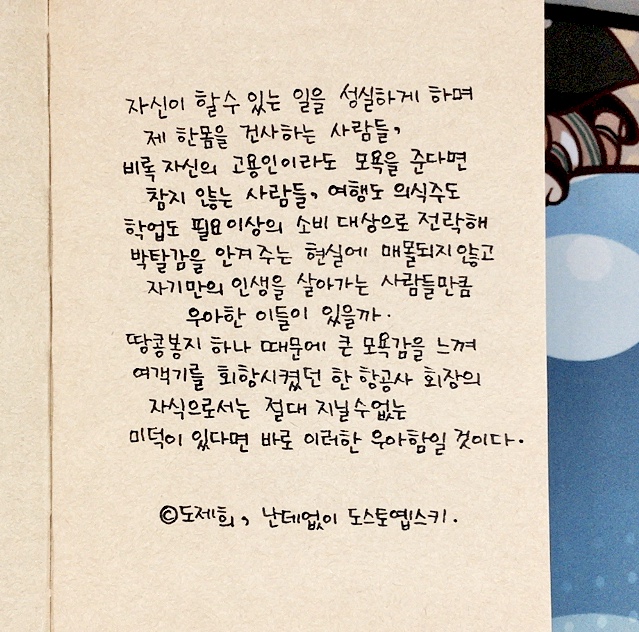 자신이 할 수 있는 일을 성실하게 하며
제 한몸을 건사하는 사람들,
비록 자신의 고용인이라도 모욕을 준다면
참지 않는 사람들, 여행도 의식주도
학업도 필요이상의 소비 대상으로 전락해
박탈감을 안겨주는 현실에 매몰되지 않고
자기만의 인생을 살아가는 사람들만큼
우아한 이들이 있을까.
땅콩봉지 하나 때문에 큰 모욕감을 느껴
여객기를 회항시켰던 한 항공사 회장의
자식으로서는 절대 지닐수없는
미덕이 있다면 바로 이러한 우아함일 것이다.
©도제희, 난데없이 도스토옙스키.